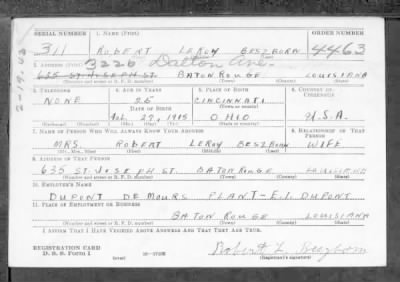 SERIAL NUMBER 1. NAME (Print) ORDER NUMBER
311 ROBERT LEROY BESZBORN 4463
(First) (Middle) (Last)
3226 Dalton Ave.
2. ADDRESS (Print)
635 ST. JOSEPH ST. BATON ROUGE LOUISIANA
(Number and street or R. F. D. number) (Town) (County) (State)
3. TELEPHONE 4. AGE IN YEARS 5. PLACE OF BIRTH 6. COUNTRY OF CITIZENSHIP
NONE 25 CINCINNATI
DATE OF BIRTH (Town or county)
Feb. 27, 1915 OHIO U.S.A.
(Mo.) (Day) (Yr.) (State or country)
7. NAME OF PERSON WHO WILL ALWAYS KNOW YOUR ADDRESS 8. RELATIONSHIP OF THAT PERSON
MRS. ROBERT LEROY BESZBORN WIFE
(Mr., Mrs., Miss) (First) (Middle) (Last)
9. ADDRESS OF THAT PERSON
635 ST. JOSEPH ST. BATON ROUGE LOUISIANA
(Number and street or R. F. D. number) (Town) (County) (State)
10. EMPLOYER'S NAME
DUPONT DE MOURS PLANT-E.I. DUPONT
11. PLACE OF EMPLOYMENT OR BUSINESS
BATON ROUGE LOUISIANA
(Number and street or R. F. D. number) (Town) (County) (State)
I AFFIRM THAT I HAVE VERIFIED ABOVE ANSWERS AND THAT THEY ARE TRUE.
REGISTRATION CARD
D. S. S. Form 1 (over) Robert L. Beszborn
(Registrant's signature)